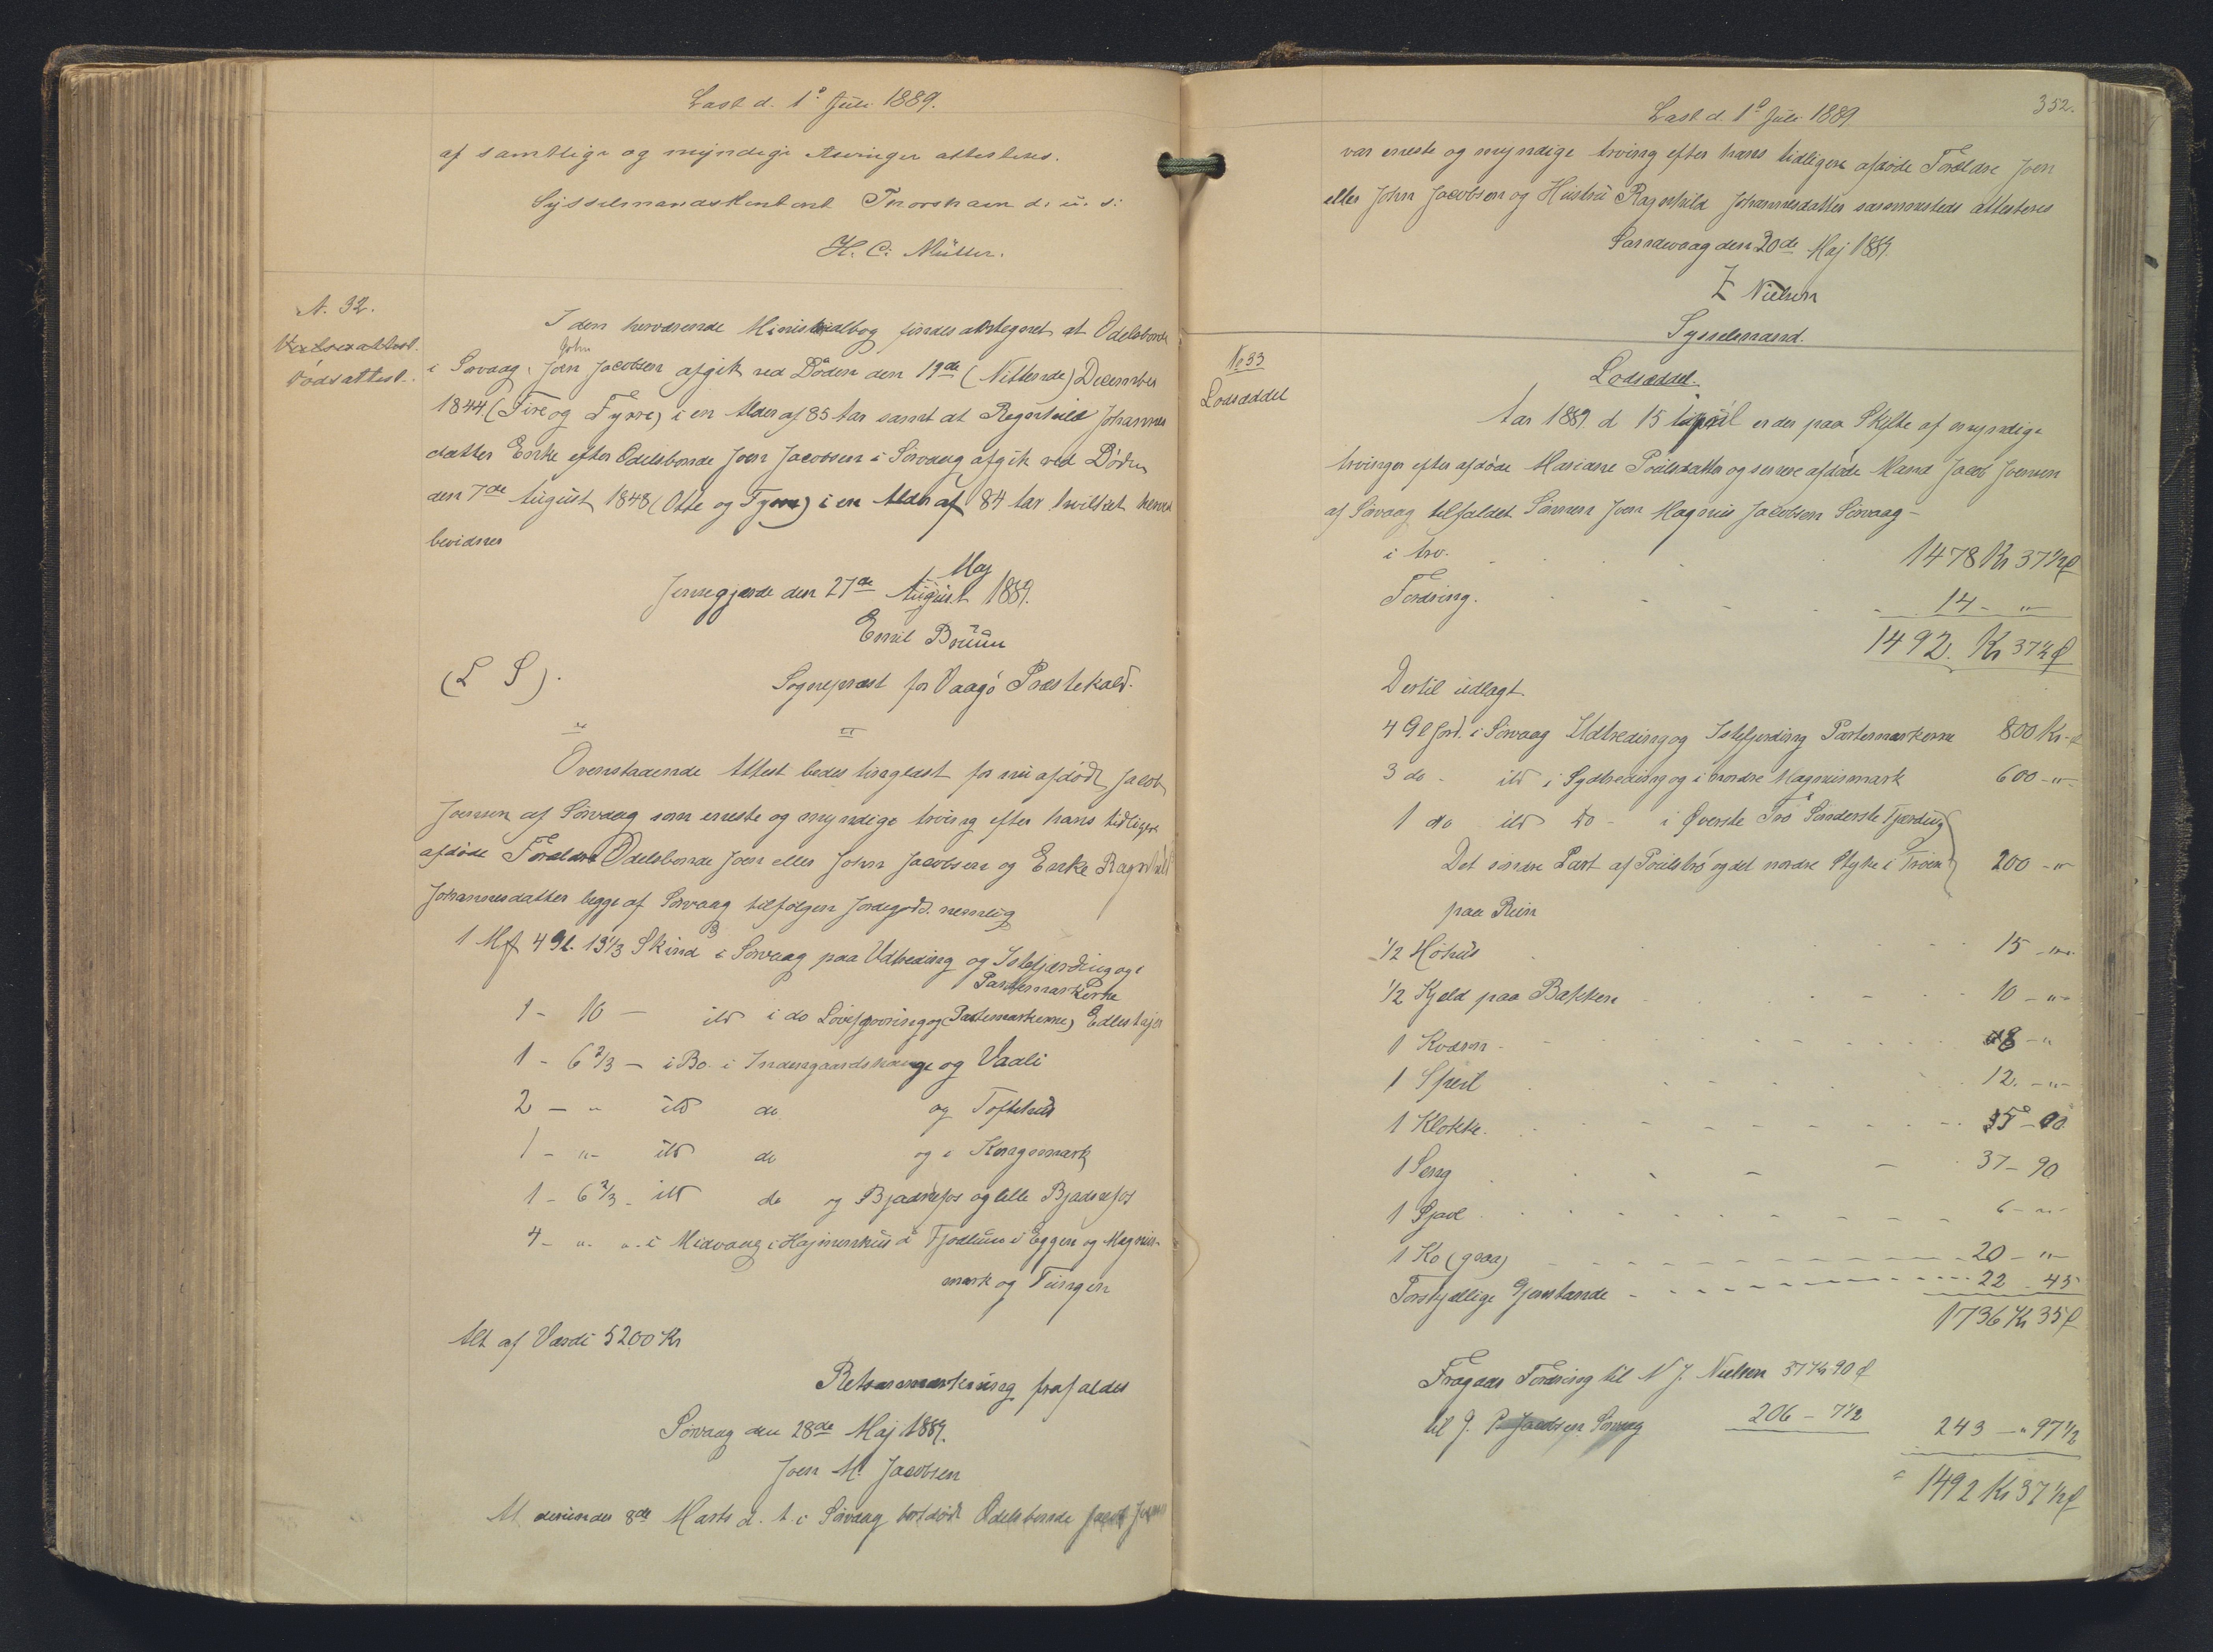 Læst d. 1ᵒ Juli 1889.
af samtlige og myndige Arvinger attesteres.
Sysselmandskontoret Thorshavn d. u. s.
H. C. Müller.
N. 32.
Vielsesattest.
Dødsattest.
I den herværende Ministerialbog findes antegnet at Odelsbonde
John
i Sørvaag, Joen Jacobsen afgik ved Døden den 19de (Nittende) December
1844 (Fire og Fyrre) i en Alder af 85 Aar samt at Ragnhild Johannes
datter Enke efter Odelsbonde Joen Jacobsen i Sørvaag afgik ved Døden
den 7de August 1848 (Otte og Fyrre) i en Alder af 84 Aar hvilket herved
bevidnes
Maj
Jennegjærde den 27de August 1889.
Emil Bruun
(L S).
Sognepræst for Vaagø Præstekald.
Ovenstaaende Attest bedes tinglæst for nu afdøde Jacob
Joensen af Sørvaag som eneste og myndige Arving efter hans tidligere
afdøde Forældre Odelsbonde Joen eller John Jacobsen og Enke Ragnhild
Johannesdatter begge af Sørvaag tilfølgen Jordegods. nemlig
1 Mk 4 Gl. 13⅓ Skind i Sørvaag paa Udtreding og Istefjærding og i
Partemarkerne
1 - 10 - ibd i do Løvefjooring og (Partemarkerne) Edlestajer
1 - 6⅔ - i Bo. i Indengaardshauge og Vaali
2 - " ibd do og Toftehus
1 - " - ibd do og i Kragesmark
1 - 6⅔ - ibd do og Bjadnefos og lille Bjadnefos
4 - " " i Midvaag i Hajnunshus á Fjødlum i Eggen og Magnus-
mark og Tungen
Alt af Værdi 5200 Kr
Retsanmærkning frafaldes
Sørvaag den 28de Maj 1889.
Joen M. Jacobsen
At denunder 8de Marts d. A. i Sørvaag bortdøde Odelsbonde Jacob Joensen
352.
Læst d. 1ᵒ Juli 1889
var eneste og myndige Arving efter hans tidligere afdøde Forældre Joen
eller John Jacobsen og Hustru Ragnhild Johannesdatter sammesteds attesteres
Sandevaag den 30de Maj 1889.
Z Nielsen
Sysselmand.
No 33
Lodseddel
Lodseddel.
Aar 1889. d 15 April er der paa Skifte af myndige
Arvinger efter afdøde Mariane Poulsdatter og senere afdøde Mand Jacob Joensen
af Sørvaag tilfaldet Sønnen Joen Magnus Jacobsen Sørvaag -
i Arv. 1478 Kr 37½ Ø
Fordring. 14 - "
1492. Kr 37½ Ø
Dertil udlagt.
4 Gl Jord. i Sørvaag Udtreding og Istefjerding Partemarkerne 800 Kr - Ø
3 do - ibd i Sydtreding og i nordre Magnusmark 600 - " -
1 do ibd do - i Øverste Trö Sønderste Fjerding
Det søndre Part af Poulströ og det nordre Stykke i Tröen 200 - "
paa Ruin
½ Høhus 15 - "
½ Kjeld paa Bakken 10 - "
1 Kværn 8 - "
1 Speil 12. - " -
1 Klokke. 5 - 00
1 Seng 37 - 90
1 Sjavl 6 - " -
1 Ko (graa) 20 - "
Forskjellige Gjenstande 22 - 45
1736 Kr 35 Ø
Fragaar Fordring til N J. Nielsen 37 Kr 90 Ø
til J. P. Jacobsen Sørvaag 206 - 7½ 243 - " 97½
1492 Kr 37½ Ø